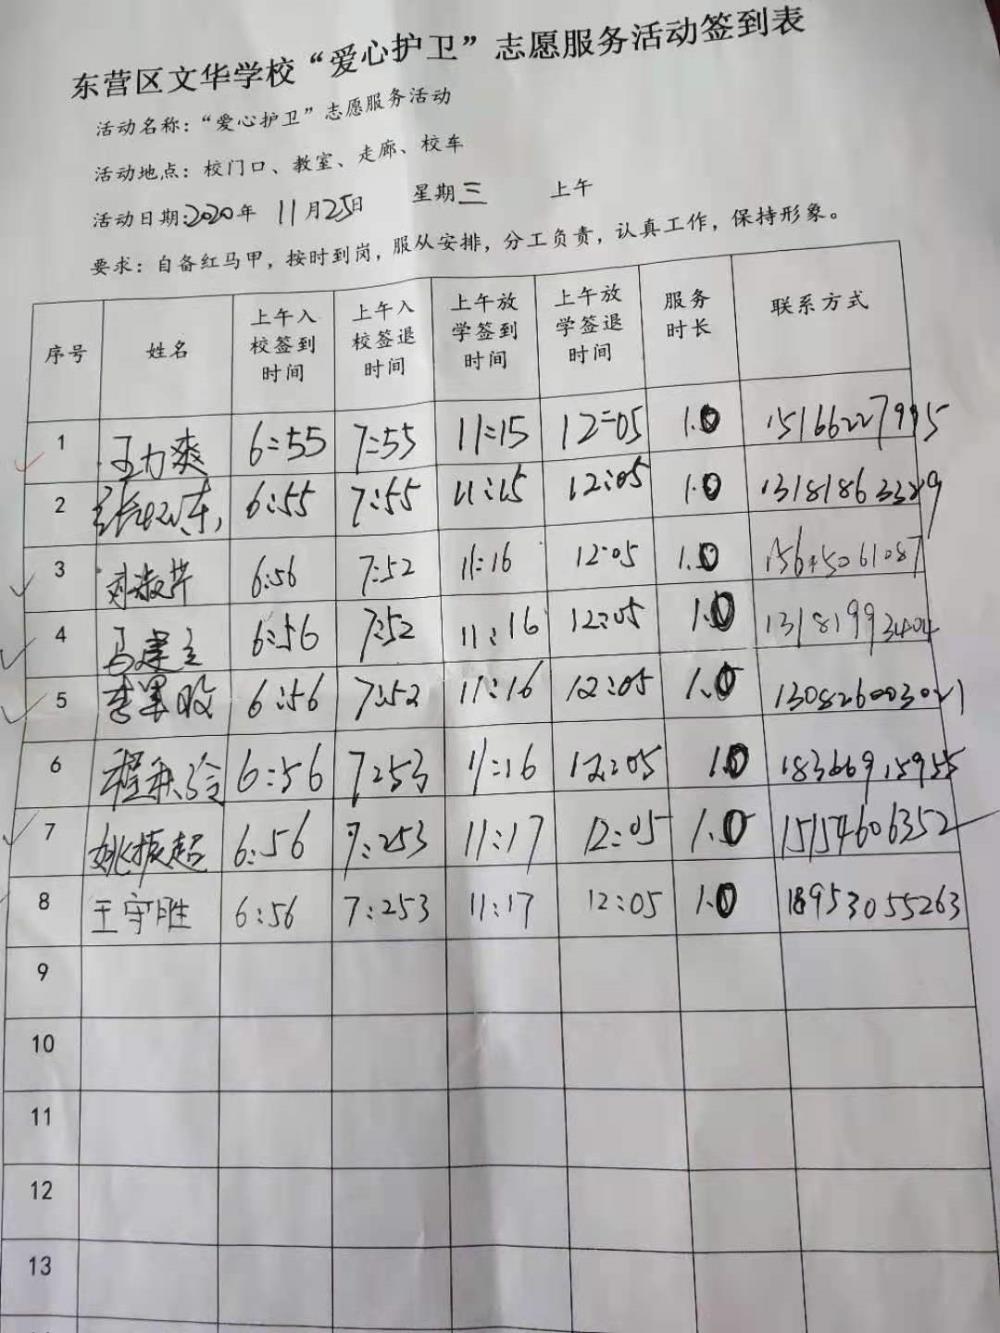 东营区文华学校“爱心护卫”志愿服务活动签到表
活动名称：“爱心护卫”志愿服务活动
活动地点：校门口、教室、走廊、校车
活动日期：2020年 11月25日 星期三 上午
要求：自备红马甲，按时到岗，服从安排，分工负责，认真工作，保持形象。
序号 姓名 上午入校签到时间 上午入校签退时间 上午放学签到时间 上午放学签退时间 服务时长 联系方式
1 王力爽 6:55 7:55 11:15 12:05 1.0 15166227995
2 6:55 7:55 11:15 12:05 1.0
3 刘淑芹 6:56 7:52 11:16 12:05 1.0 15645061087
4 马建立 6:56 7:52 11:16 12:05 1.0 13181993404
5 6:56 7:52 11:16 12:05 1.0
6 6:56 7:253 11:16 12:05 1.0 18366915955
7 姚振超 6:56 7:253 11:17 12:05 1.0 15154606352
8 王守胜 6:56 7:253 11:17 12:05 1.0 18953055263
9
10
11
12
13